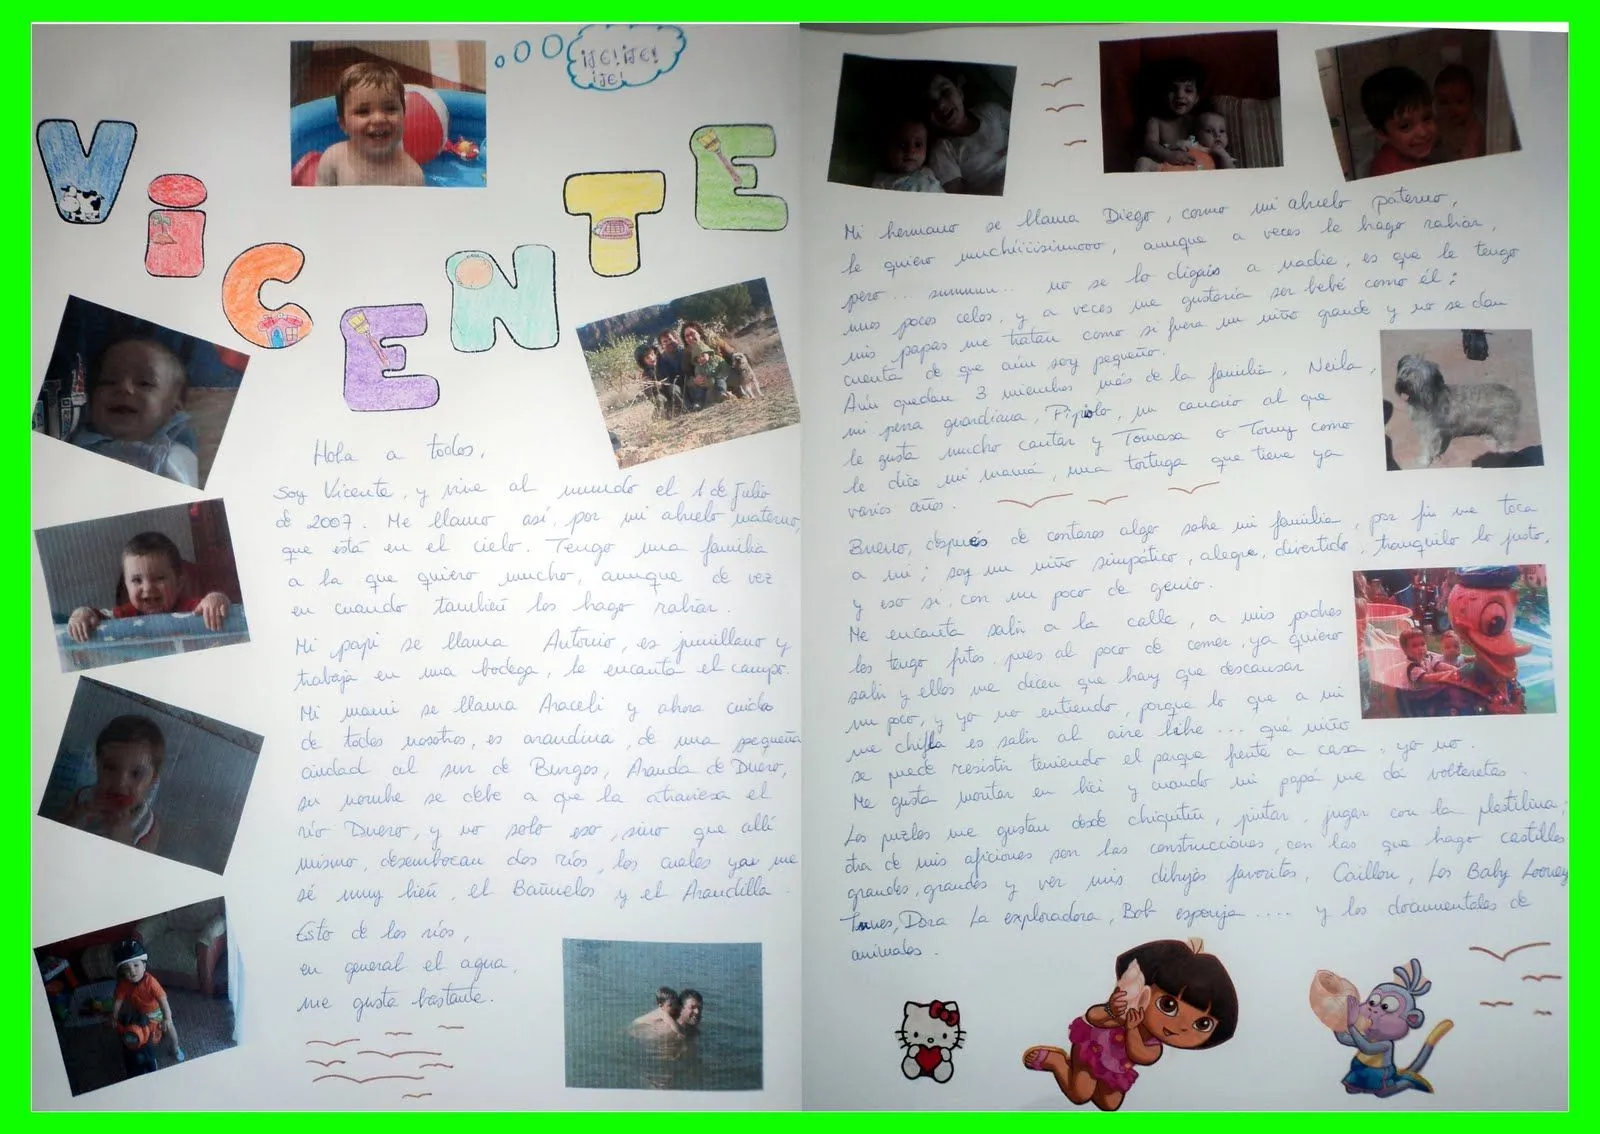 ¡JE! ¡JE!
¡JE!
VICENTE
Hola a todos,
Soy Vicente, y vine al mundo el 1 de Julio
de 2007. Me llamo así, por mi abuelo materno,
que está en el cielo. Tengo una familia
a la que quiero mucho, aunque de vez
en cuando también los hago rabiar.
Mi papi se llama Antonio, es jumillano y
trabaja en una bodega, le encanta el campo.
Mi mami se llama Araceli y ahora cuida
de todos nosotros, es arandina, de una pequeña
ciudad al sur de Burgos, Aranda de Duero,
su nombre se debe a que la atraviesa el
río Duero, y no solo eso, sino que allí
mismo, desembocan dos ríos, los cuales ya me
sé muy bien, el Bañuelos y el Arandilla.
Esto de los ríos,
en general el agua,
me gusta bastante.
Mi hermano se llama Diego, como mi abuelo paterno,
le quiero muchiiiisimooo, aunque a veces le hago rabiar,
pero... summm... no se lo digáis a nadie, es que le tengo
unos pocos celos, y a veces me gustaría ser bebé como él;
mis papas me tratan como si fuera un niño grande y no se dan
cuenta de que aún soy pequeño.
Aún quedan 3 miembros más de la familia, Neila,
mi perra guardiana, Pipiolo, un canario al que
le gusta mucho cantar y Tomasa o Tomy como
le dice mi mamá, una tortuga que tiene ya
varios años.
Bueno, después de contaros algo sobre mi familia, por fin me toca
a mi; soy un niño simpático, alegre, divertido, tranquilo lo justo,
y eso sí, con un poco de genio.
Me encanta salir a la calle, a mis padres
los tengo fritos, pues al poco de comer, ya quiero
salir y ellos me dicen que hay que descansar
un poco, y yo no entiendo, porque lo que a mi
me chifla es salir al aire libre... qué niño
se puede resistir teniendo el parque frente a casa, yo no.
Me gusta montar en bici y cuando mi papá me dá volteretas.
Los puzles me gustan desde chiquitin, pintar, jugar con la plastilina;
otra de mis aficiones son las construcciones, con las que hago castillos
grandes, grandes y ver mis dibujos favoritos, Caillou, Los Baby Looney
Tunes, Dora La exploradora, Bob esponja .... y los documentales de
animales.